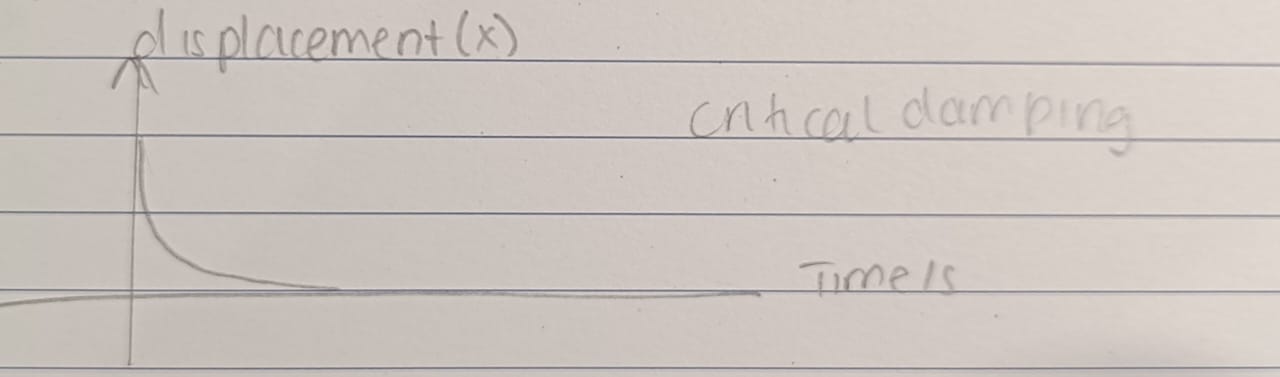 displacement (x)
critical damping
Time/s